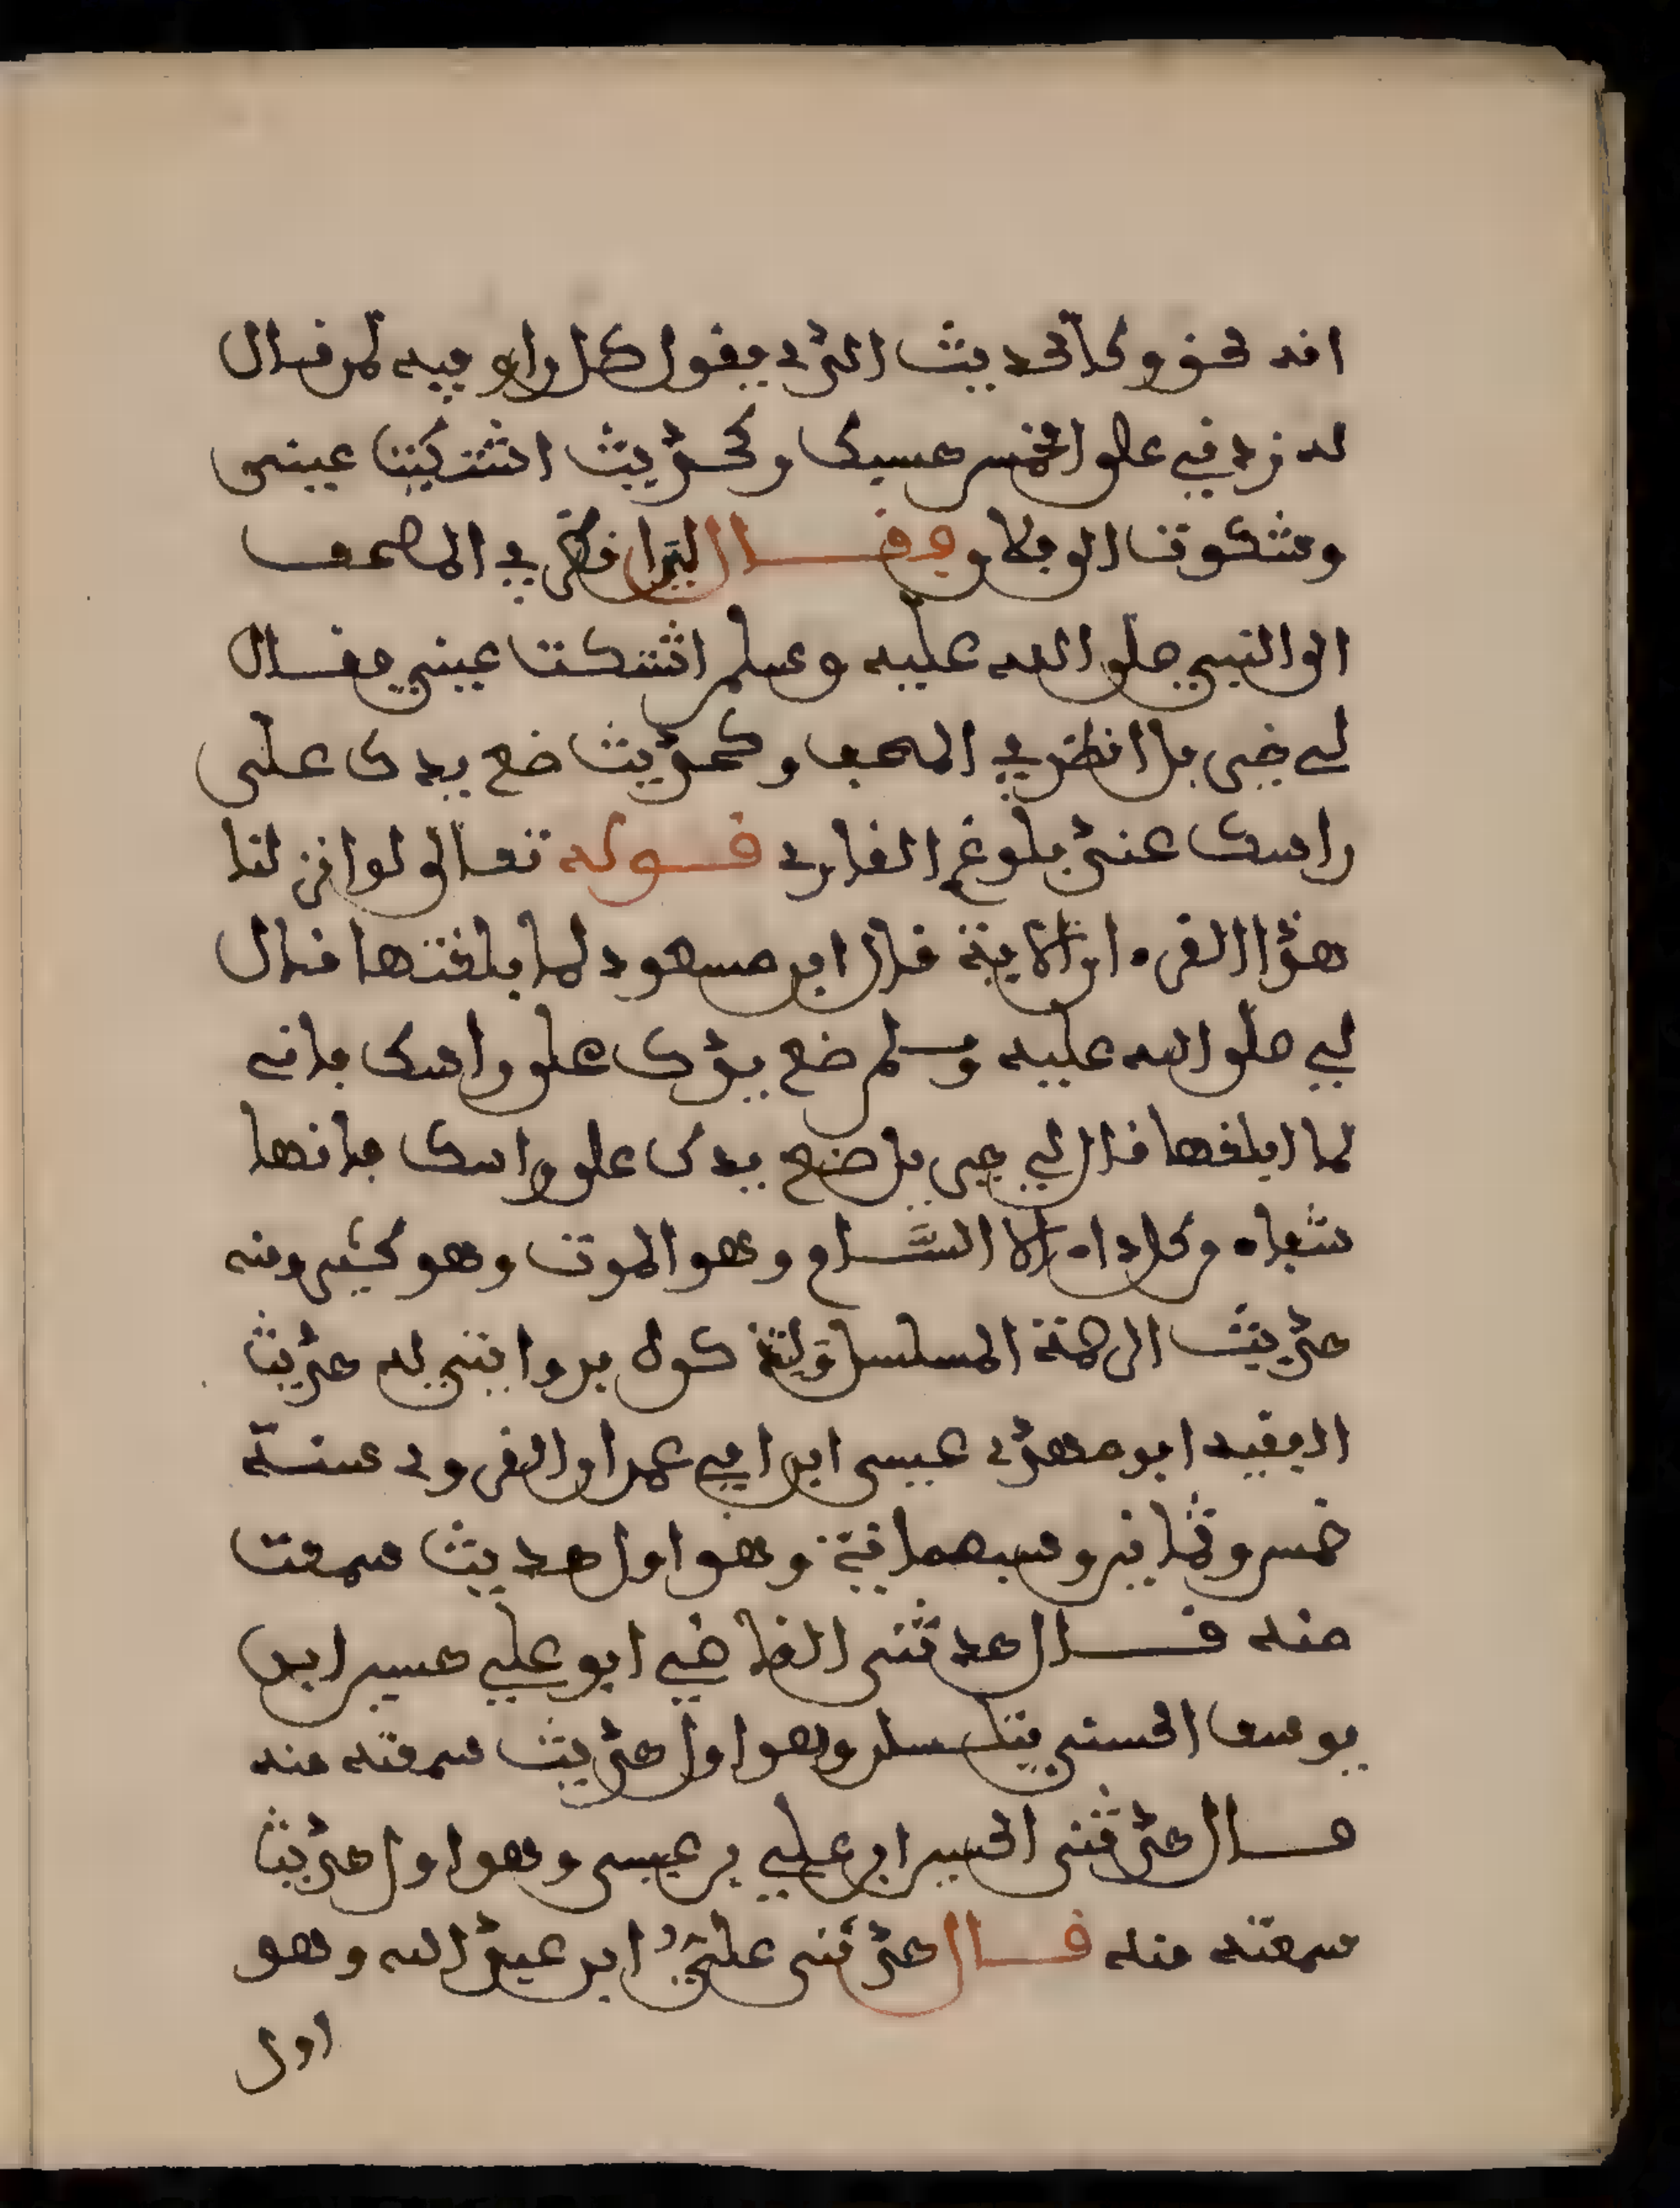 انه لحق وكالحديث الذي يقول كل راو فيه لمن قال
له زدني على الخمس حسبك وكحديث اشتكيت عيني
وشكوت الى فلان فقال لي انظر في المصحف
الى النبي صلى الله عليه وسلم اشتكت عيني فقال
لي جبريل انظر في المصحف وكحديث ضع يدك على
راسك عند بلوغ القاري قوله تعالى لو انزلنا
هذا القرءان الاية قال ابن مسعود لما بلغتها قال
لي صلى الله عليه وسلم ضع يدك على راسك فاني
لما ابلغها قال لي جبريل ضع يدك على راسك فانها
شفاء من كل داء الا السام وهو الموت وهو كثير ومنه
حديث الرحمة المسلسل كوله بروايتي له حديث
الفقيه ابو مهدي عيسى ابن ابي عمران القروي سنة
خمس وثمانين وسبعمائة وهو اول حديث سمعت
منه قال حدثني القاضي ابو علي حسين ابن
يوسف الحسني بتلمسان وهو اول حديث سمعته منه
قال حدثني الحسين ابن علي بن عيسى وهو اول حديث
سمعته منه قال حدثني علي ابن عبد الله وهو
اول